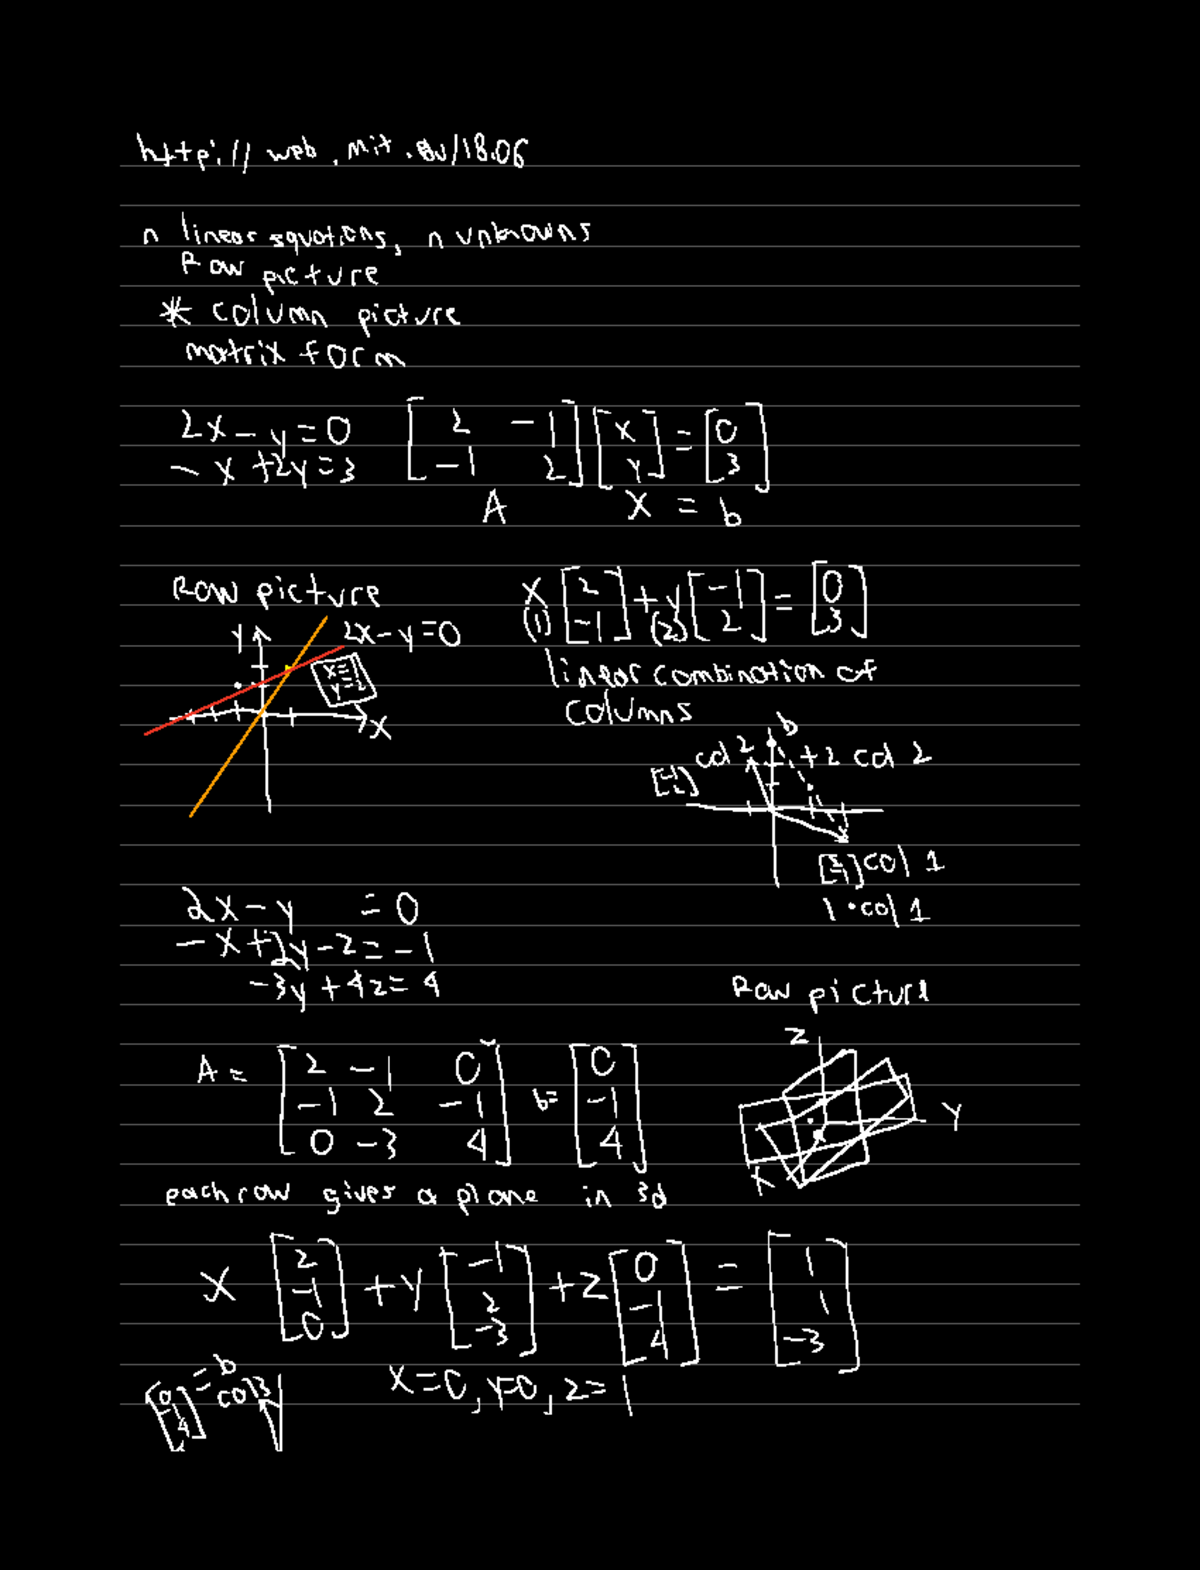 http://web.mit.edu/18.06
n linear equations, n unknowns
Row picture
* column picture
matrix form
2x - y = 0 [2 -1; -1 2] [x; y] = [0; 3]
-x + 2y = 3
A x = b
Row picture
x [2; -1] + y [-1; 2] = [0; 3]
(1) (2)
y
2x - y = 0
x=1
y=2
x
linear combination of
columns
b
col 2
+2 col 2
[-1; 2]
[2; -1] col 1
1 · col 1
2x - y = 0
-x + 2y - z = -1
-3y + 4z = 4
Row picture
z
y
x
A = [2 -1 0; -1 2 -1; 0 -3 4] b= [0; -1; 4]
each row gives a plane in 3d
x [2; -1; 0] + y [-1; 2; -3] + z [0; -1; 4] = [1; 1; -3]
x=0, y=0, z=1
[0; -1; 4] = b
col 3